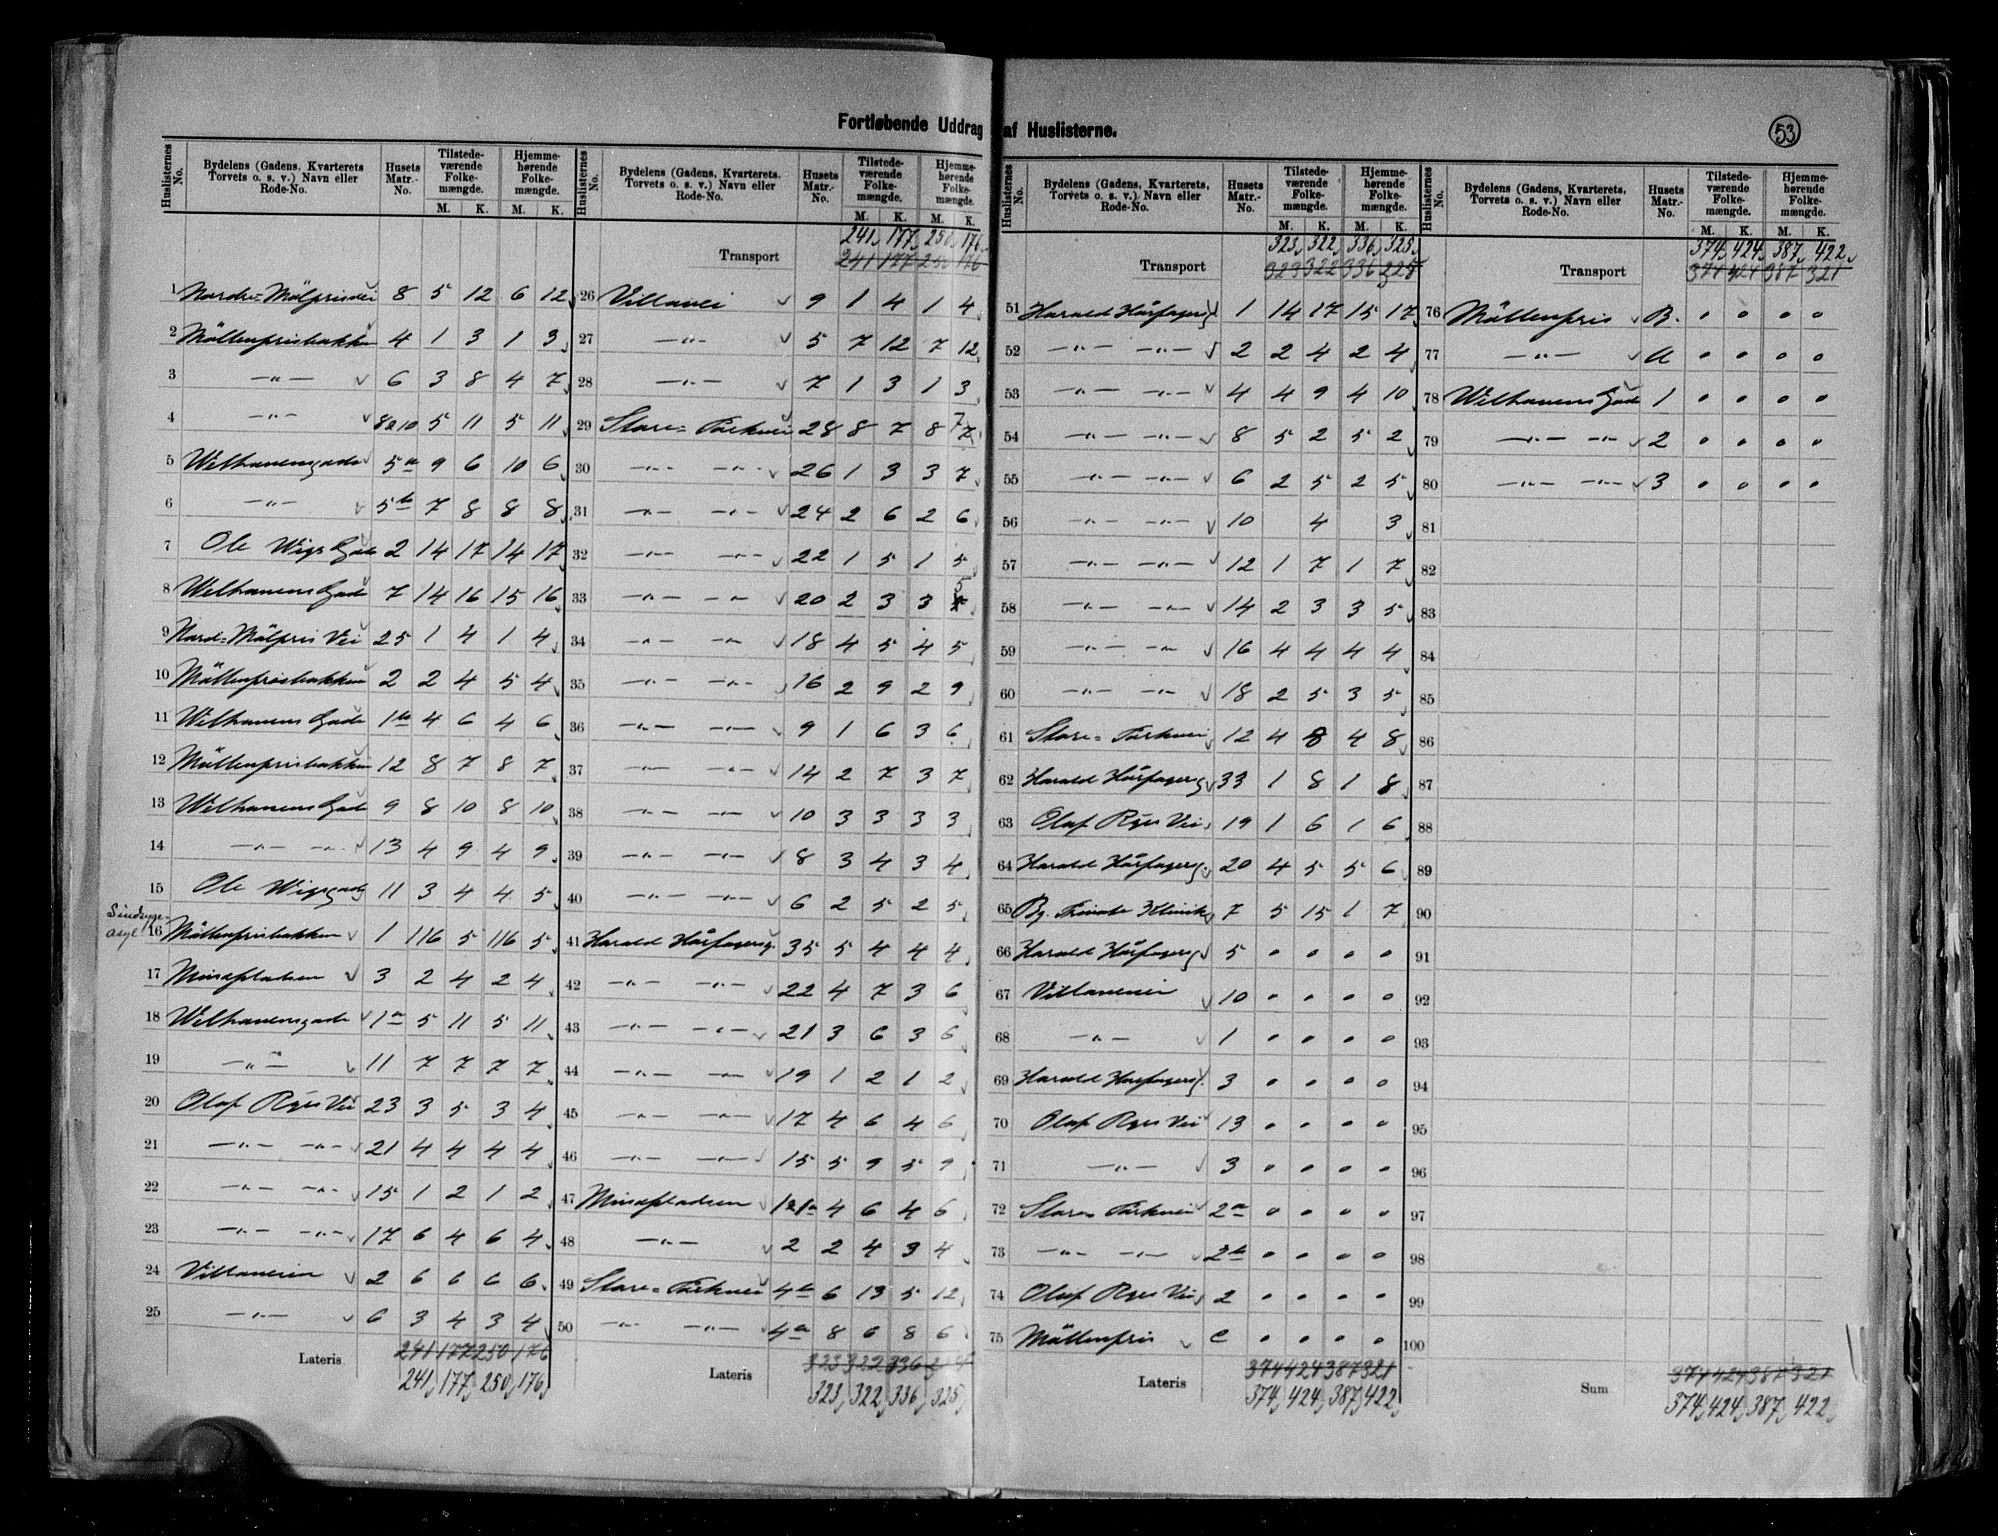 Fortløbende Uddrag af Huslisterne.
53
Huslisternes No. | Bydelens (Gadens, Kvarterets Torvets o. s. v.) Navn eller Rode-No. | Husets Matr.-No. | Tilstedeværende Folkemængde. M. K. | Hjemmehørende Folkemængde. M. K.
1 Nordre=Mölprisvei 8 5 12 6 12
2 Möllenprisbakken 4 1 3 1 3
3 —"— 6 3 8 4 7
4 —"— 8a10 5 11 5 11
5 Welhavensgade 5a 9 6 10 6
6 —"— 5b 7 8 8 8
7 Ole Wigs Gade 2 14 17 14 17
8 Welhavens Gade 7 14 16 15 16
9 Nord=Mölpris Vei 25 1 4 1 4
10 Möllenprisbakken 2 2 4 5 4
11 Welhavens Gade 1b 4 6 4 6
12 Möllenprisbakken 12 8 7 8 7
13 Welhavens Gade 9 8 10 8 10
14 —"— —"— 13 4 9 4 9
15 Ole Wigsgade 11 3 4 4 5
Sindsyge-
asyl 16 Möllenprisbakken 1 116 5 116 5
17 Mindepladsen 3 2 4 2 4
18 Welhavensgade 1a 5 11 5 11
19 —"— 11 7 7 7 7
20 Olaf Ryes Vei 23 3 5 3 4
21 —"— —"— 21 4 4 4 4
22 —"— —"— 15 1 2 1 2
23 —"— —"— 17 6 4 6 4
24 Villaveien 2 6 6 6 6
25 —"— 6 3 4 3 4
Lateris 241 177 250 176
241 177 250 176
Huslisternes No. | Bydelens (Gadens, Kvarterets, Torvets o. s. v.) Navn eller Rode-No. | Husets Matr.-No. | Tilstedeværende Folkemængde. M. K. | Hjemmehørende Folkemængde. M. K.
241 177 250 176
Transport 241 177 250 176
26 Villavei 9 1 4 1 4
27 —"— 5 7 12 7 12
28 —"— 7 1 3 1 3
29 Store=Parkvei 28 8 7 8 7
30 —"— —"— 26 1 3 3 7
31 —"— —"— 24 2 6 2 6
32 —"— —"— 22 1 5 1 5
33 —"— —"— 20 2 3 3 5
34 —"— —"— 18 4 5 4 5
35 —"— —"— 16 2 9 2 9
36 —"— —"— 9 1 6 3 6
37 —"— —"— 14 2 7 3 7
38 —"— —"— 10 3 3 3 3
39 —"— —"— 8 3 4 3 4
40 —"— —"— 6 2 5 2 5
41 Harald Hårfagersg. 35 5 4 4 4
42 —"— —"— 22 4 7 3 6
43 —"— —"— 21 3 6 3 6
44 —"— —"— 19 1 2 1 2
45 —"— —"— 17 4 6 4 6
46 —"— —"— 15 5 9 5 9
47 Mindepladsen 4 6 4 6
48 —"— 2 2 4 3 4
49 Store=Parkvei 4b 6 13 5 12
50 —"— —"— 4a 8 6 8 6
Lateris 323 322 336
323 322 336 325
Huslisternes No. | Bydelens (Gadens, Kvarterets, Torvets o. s. v.) Navn eller Rode-No. | Husets Matr.-No. | Tilstedeværende Folkemængde. M. K. | Hjemmehørende Folkemængde. M. K.
323 322 336 325
Transport 323 322 336
51 Harald Hårfagersg 1 14 17 15 17
52 —"— —"— 2 2 4 2 4
53 —"— —"— 4 4 9 4 10
54 —"— —"— 8 5 2 5 2
55 —"— —"— 6 2 5 2 5
56 —"— —"— 10 4 3
57 —"— —"— 12 1 7 1 7
58 —"— —"— 14 2 3 3 5
59 —"— —"— 16 4 4 4 4
60 —"— —"— 18 2 5 3 5
61 Store=Parkvei 12 4 8 4 8
62 Harald Hårfagersg 33 1 8 1 8
63 Olaf Ryes Vei 19 1 6 1 6
64 Harald Hårfagersg. 20 4 5 5 6
65 Bg. Private Klinik 7 5 15 1 7
66 Harald Hårfagersg 5 0 0 0 0
67 Villaveien 10 0 0 0 0
68 —"— 1 0 0 0 0
69 Harald Harfagersg. 3 0 0 0 0
70 Olaf Ryes Vei 13 0 0 0 0
71 —"— 3 0 0 0 0
72 Store= Parkvei 2a 0 0 0 0
73 —"— —"— 2b 0 0 0 0
74 Olaf Ryes Vei 2 0 0 0 0
75 Möllenpris C 0 0 0 0
Lateris 374 424 387 321
374 424 387 422
Huslisternes No. | Bydelens (Gadens, Kvarterets, Torvets o. s. v.) Navn eller Rode-No. | Husets Matr.-No. | Tilstedeværende Folkemængde. M. K. | Hjemmehørende Folkemængde. M. K.
374 424 387 422
Transport 374 424 387 321
76 Möllenpris B. 0 0 0 0
77 —"— A 0 0 0 0
78 Welhavens Gade 1 0 0 0 0
79 —"— —"— 2 0 0 0 0
80 —"— —"— 3 0 0 0 0
81
82
83
84
85
86
87
88
89
90
91
92
93
94
95
96
97
98
99
100
Sum 374 424 387 321
374 424 387 422